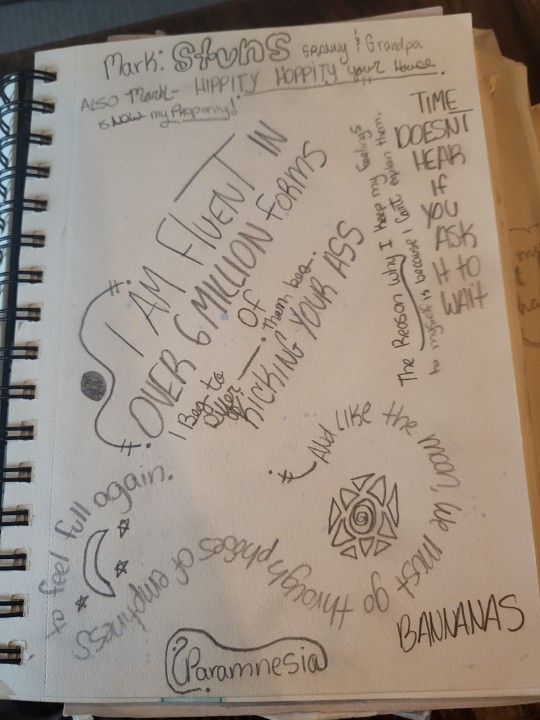 Mark: Stuns GRANNY & Grandpa
ALSO Mark- HIPPITY HOPPITY your House
is NOW my Property!
TIME
DOESNT
HEAR
IF
YOU
ASK
IT TO
WAIT
The Reason why I keep my feelings
to myself is because I can't explain them.
I AM FLUENT IN
OVER 6 MILLION FORMS
OF
KICKING YOUR ASS
I Beg to
Differ
Them boo.
And like the moon, we must go through phases of emptiness
to feel full again.
BANNANAS
Paramnesia